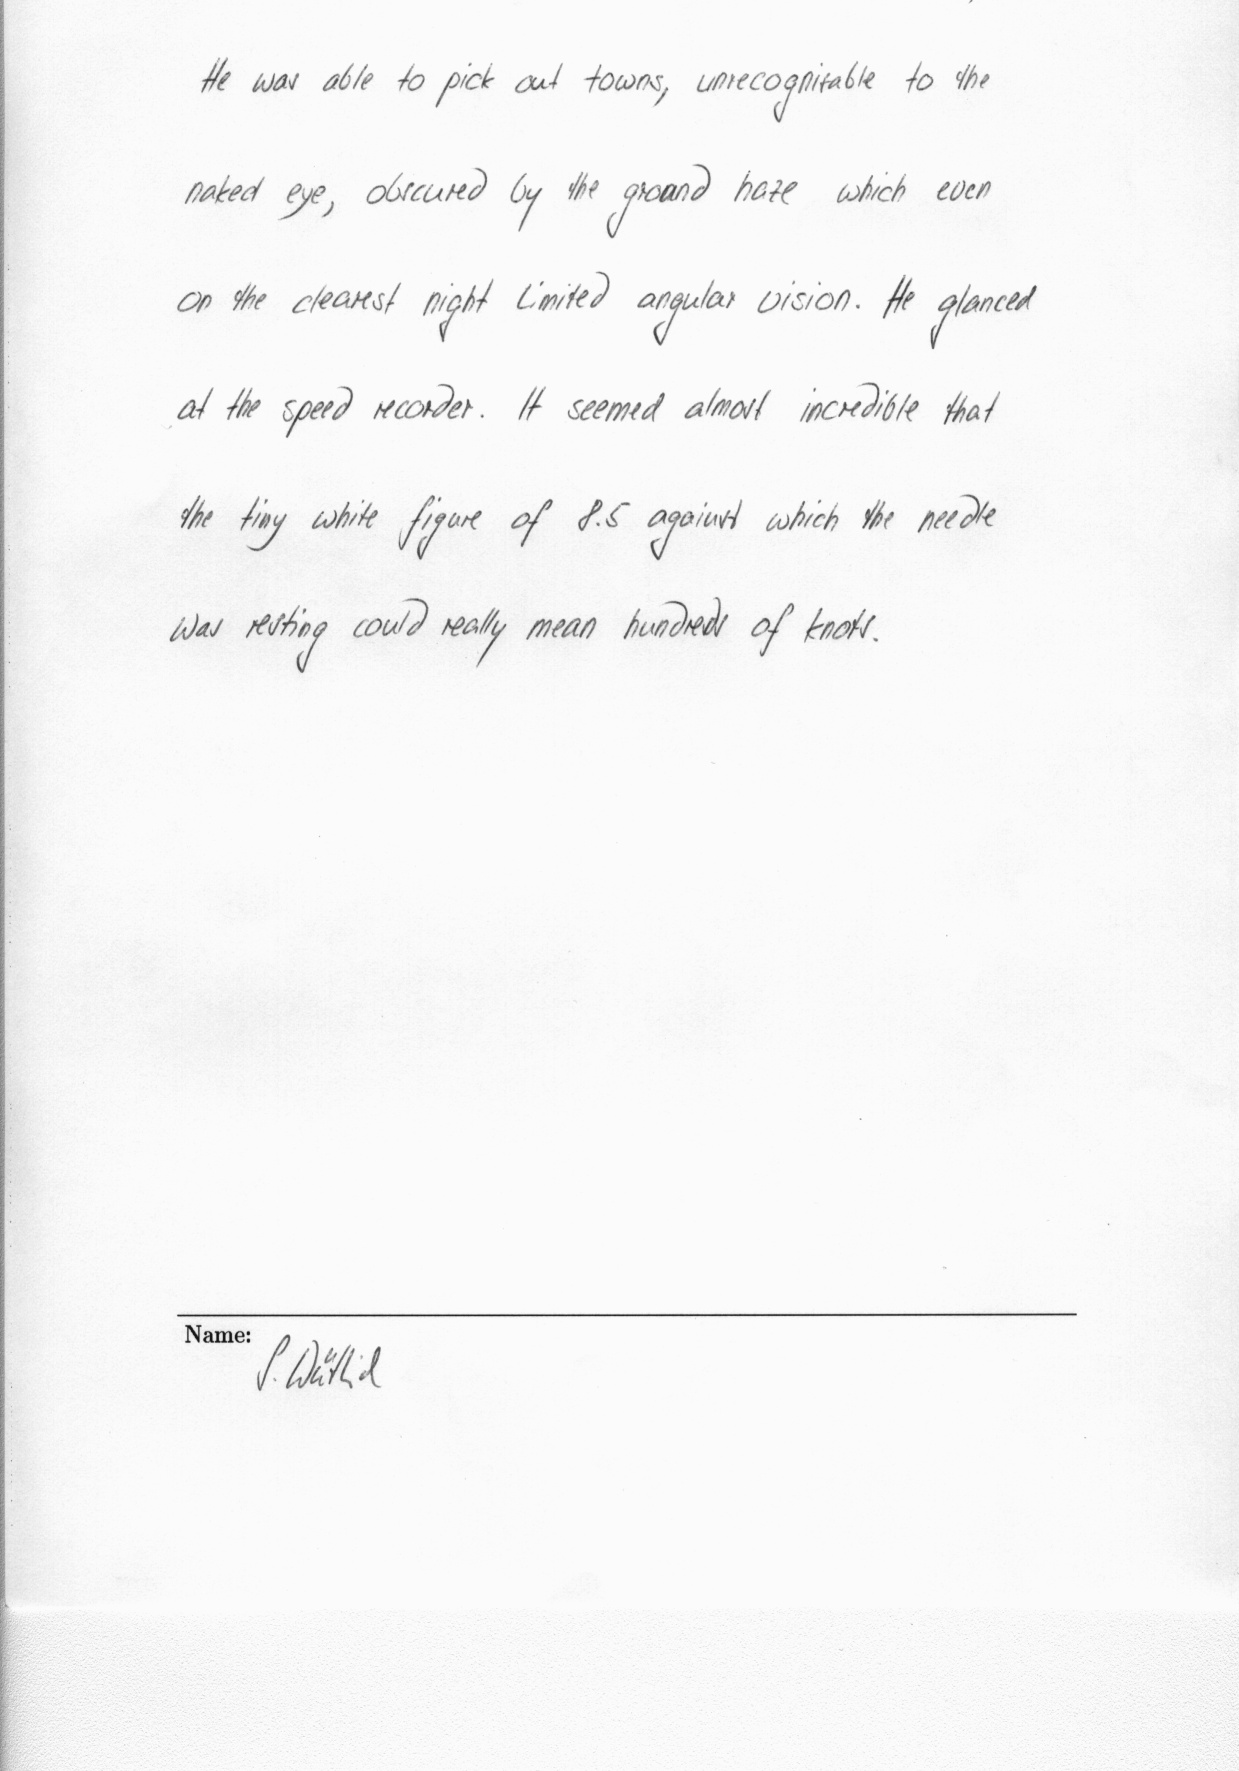 He was able to pick out towns, unrecognizable to the
naked eye, obscured by the ground haze which even
on the clearest night limited angular vision. He glanced
at the speed recorder. It seemed almost incredible that
the tiny white figure of 8.5 against which the needle
was resting could really mean hundreds of knots.
Name:
S.